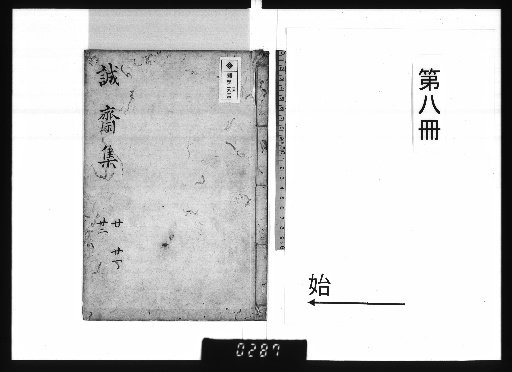 第八冊
始
誠齋集
廿
廿二
0287